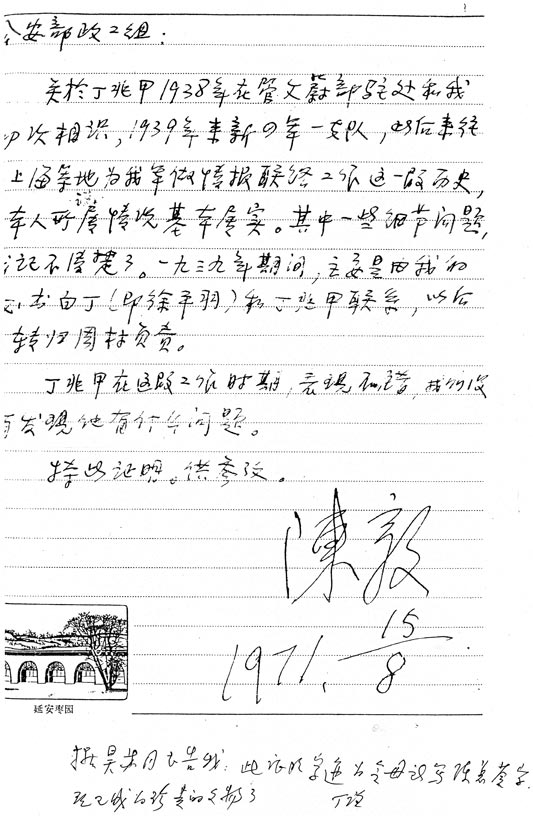 公安部政工组：
关於丁兆甲1938年在管文蔚部驻处和我
初次相识，1939年来新四军一支队，以后来往
上海等地为我军做情报联络工作这一段历史，
本人所谈情况基本属实。其中一些细节问题，
记不清楚了。一九三九年期间，主要是由我的
秘书白丁（即徐平羽）和丁兆甲联系，以后
转归周林负责。
丁兆甲在这段工作时期，表现不错，我们没
有发现他有什么问题。
特此证明。供参考。
陳毅
1971. 15/8
延安枣园
同志告我：此证明
现已成为珍贵的文物了